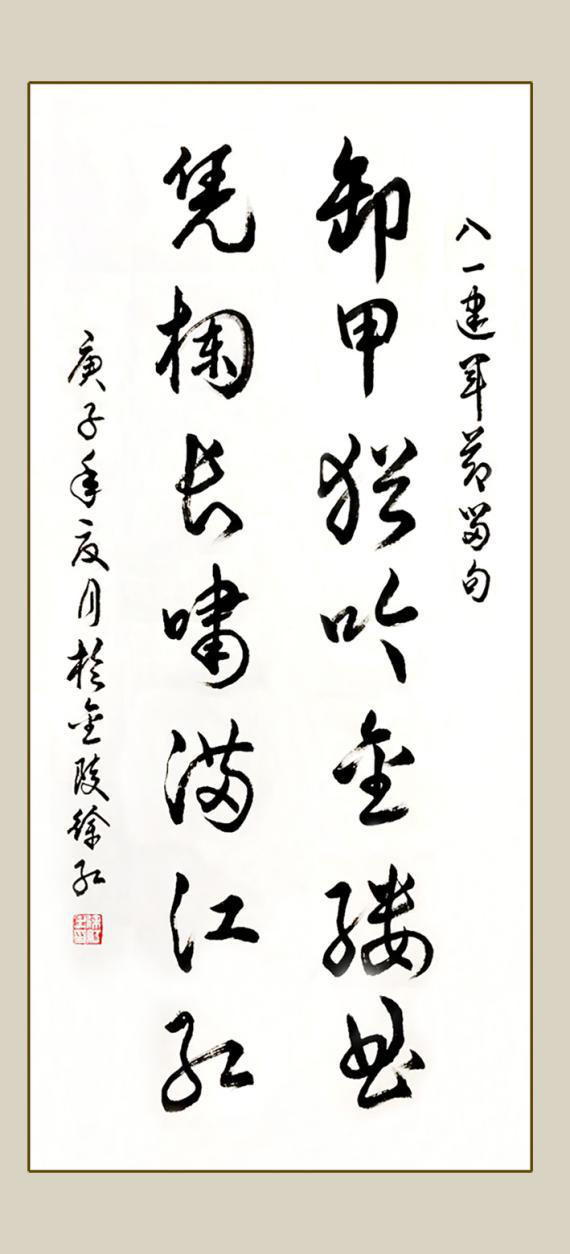 八一建军节留句
卸甲犹吟金缕曲
凭栏长啸满江红
庚子年夏月于金陵徐红